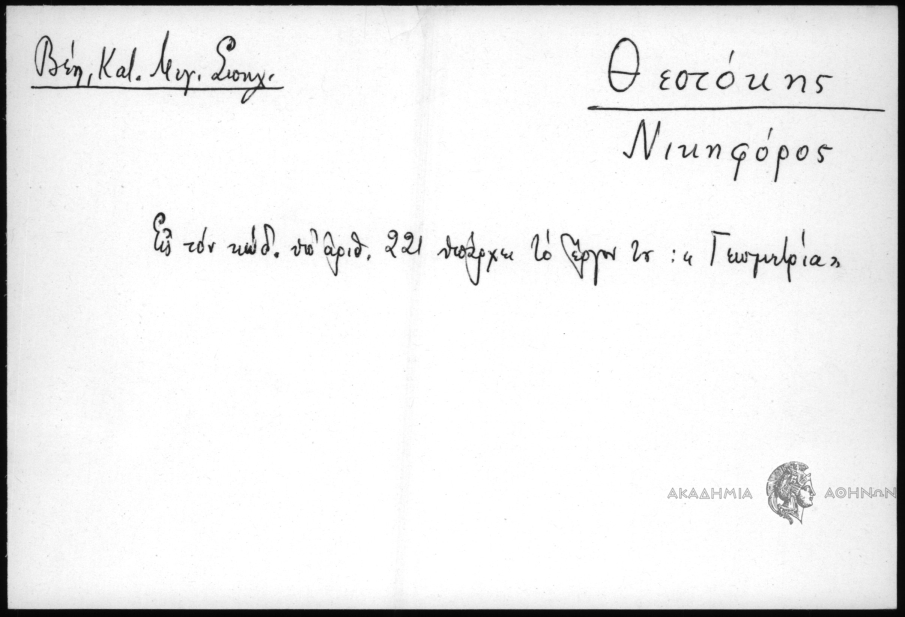 Βέη, Κατ. Μεγ. Σπηλ.
Θεοτόκης
Νικηφόρος
Εἰς τόν κώδ. ὑπ' ἀριθ. 221 ὑπάρχει τό ἔργον του : « Γεωμετρία »
ΑΚΑΔΗΜΙΑ ΑΘΗΝΩΝ